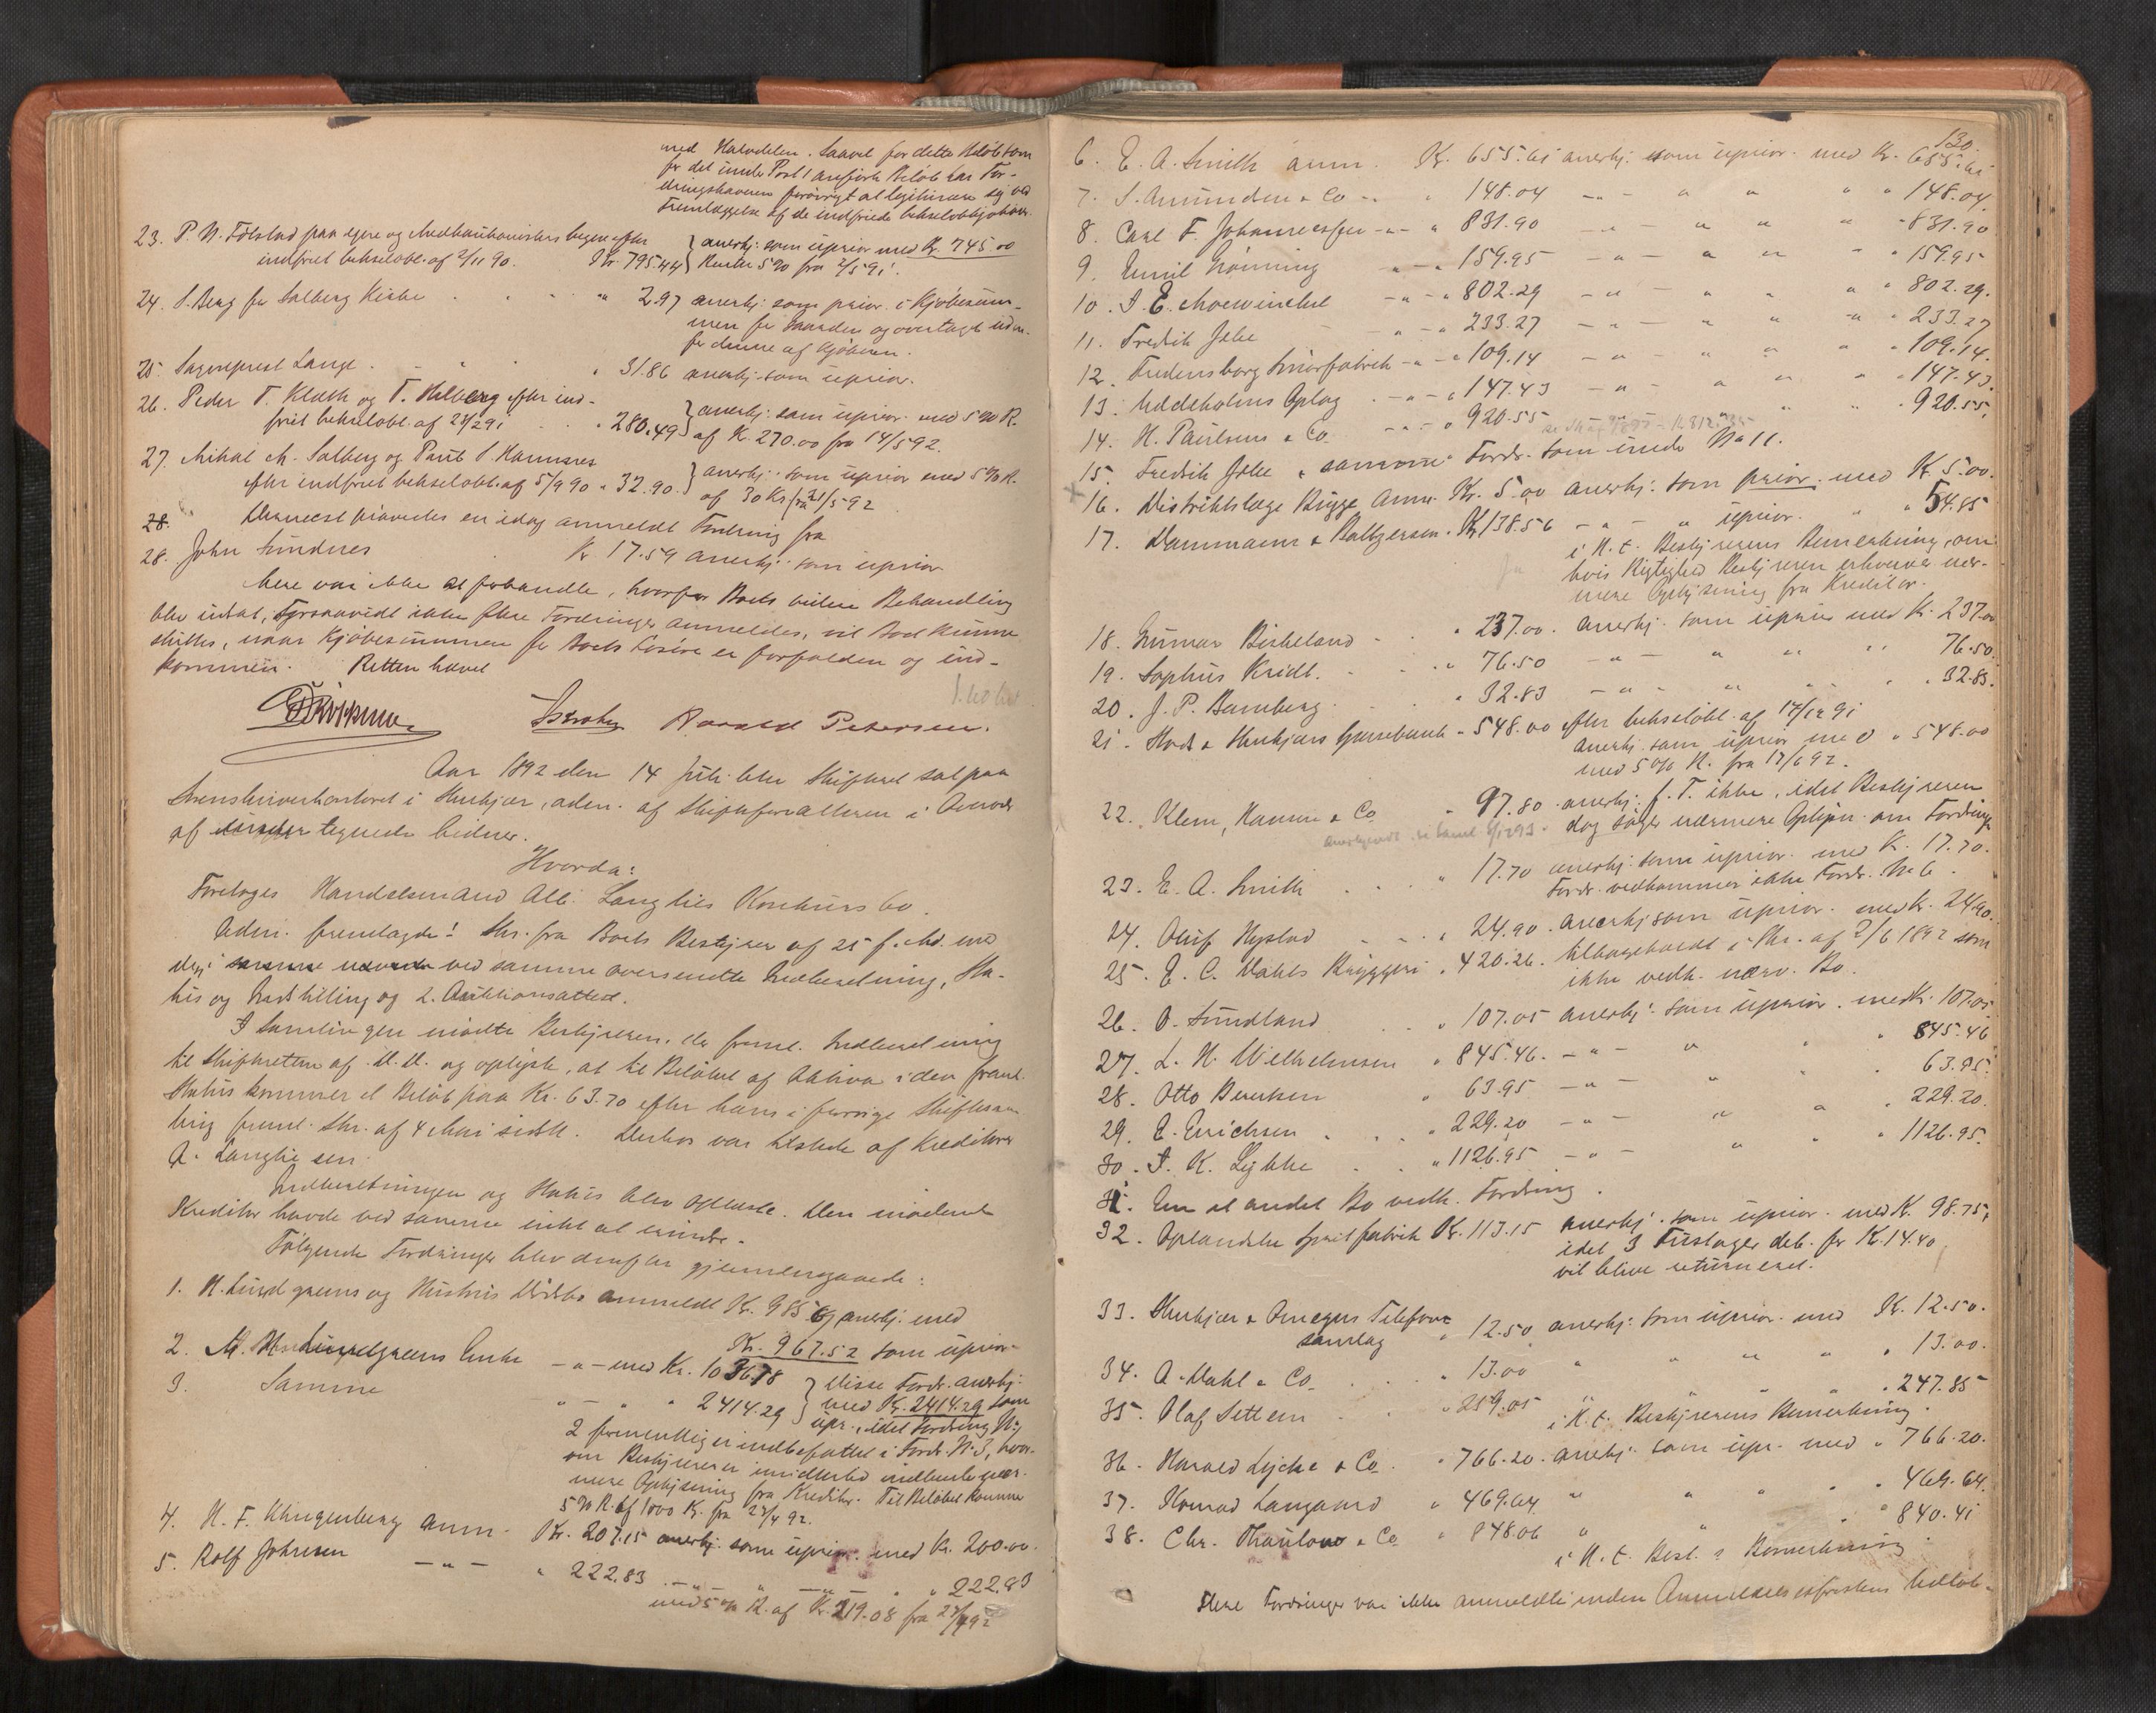 med Halvdelen. Saavel for dette Beløb som
for det under Post 1 anførte Beløb har For-
dringshaveren forøvrigt at legitimere sig ved
Fremlæggelse af de indfriede Vekselobligationer.
23. P. N. Følstad paa egne og Medkautionisters Vegne efter
indfriet Vekselobl. af 2/11 90. Kr. 795.44 } anerkj. som uprior med Kr. 745.00
Renter 5 % fra 2/5 91.
24. S. Berg for Salberg Kirke . . . " 2.97 anerkj. som prior. i Kjøbesum-
men for Gaarden og overtaget uden-
for denne af Kjøberen.
25. Sogneprest Lange . " . " 31.86 anerkj. som uprior.
26. Peder T. Kluth og T. Hilberg efter ind-
friet Vekselobl. af 21/2 91 . . " 280.49 } anerkj. som uprior med 5 % R.
af K. 270.00 fra 14/5 92.
27. Mikal M. Salberg og Paul S. Hammer
efter indfriet Vekselobl. af 5/9 90 " 32.90. } anerkj. som uprior med 5 % R.
af 30 Kr fra 21/5 92
28. Dernæst prøvedes en idag anmeldt Fordring fra
28. John Sundnes . Kr 17.59 anerkj. som uprior
Mere var ikke at forhandle, hvorfor Boets videre Behandling
blev udsat, forsaavidt ikke flere Fordringer anmeldes, vil Boet kunne
sluttes, naar Kjøbesummen for Boets Løsøre er forfalden og ind-
kommen. Retten hævet
Harald Petersen.
Aar 1892 den 14 Juli blev Skifteret sat paa
Sorenskriverkontoret i Stenkjær, adm. af Skifteforvalteren i Overvær
af undertegnede Vidner.
Hvorda:
Foretoges Handelsmand Alb. Langlies Konkursbo.
Adm. fremlagde: Skr. fra Boets Bestyrer af 25 f. Md. med
de ved samme oversendte Indberetning, Sta-
tus og Indstilling og 2. Auktionsattest.
I Samlingen mødte Bestyreren, der freml. Indberetning
til Skifteretten af D. D. og oplyste, at til Beløbet af Aktiva i den freml.
Status kommer et Beløb paa Kr. 63.70 efter hans i forrige Skiftesam-
ling freml. Skr. af 4 Mai sidstl. Derhos var tilstede af Kreditorer
A. Langlie sen.
Indberetningen og Status blev oplæste. Den mødende
Kreditor havde ved samme intet at erindre.
Følgende Fordringer blev derefter gjennemgaaede:
1. H. Lundgreens og Hustrus Dødsbo anmeldt Kr. 985 anerkj. med
Kr. 967.52 som uprior
2. M. H. Lundgreens Enke - " - med Kr. 1036.78
3. Samme " - " " 2414.29 } Disse Fordr. anerkj.
med Kr. 2414.29 som
upr., idet Fordring No
2 formentlig er indbefattet i Fordr. No 3, hvor-
om Bestyreren imidlertid indhenter nær-
mere Oplysning fra Kreditor. Til Beløbet kommer
5 % R. af 1000 K. fra 23/4 92.
4. H. F. Klingenberg anm. Kr. 207.15 anerkj. som uprior. med Kr. 200.00.
5. Rolf Johnsen - " - " 222.83 - " - " - " - " " 222.83
med 5 % R. af Kr. 219.08 fra 23/4 92
130.
6. E. A. Smith anm. Kr. 655.61 anerkj. som uprior. med Kr. 655.61
7. S. Amundsen & Co - " " 148.04 - " - " " " " 148.04.
8. Carl F. Johannessen - " - " 831.90 - " - " " " " 831.90
9. Emil Grønning " - " 159.95 - " - " " " " 159.95
10. I. E. Moewinckel - " - " 802.29 - " - " " " " 802.29.
11. Fredrik Jebe - " - " 233.27 - " - " " " " 233.27
12. Fredensborg Smørfabrik - " - " 109.14 - " - " " " " 109.14.
13. Uddeholms Oplag . - " - " 147.43 - " - " " " " 147.43.
14. H. Paulsens & Co. - " - " 920.55 " " 920.55.
15. Fredrik Jebe " samme Fordr. som under No 11.
16. Distriktslæge Rygge Anm. Kr. 5.00 anerkj. som prior. med Kr. 5.00.
17. Dammann & Baltzersen. Kr. 138.56 - " - " uprior. " " 54.85
i H. t. Bestyrerens Bemerkning, om
hvis Rigtighed Bestyreren erhverver nær-
mere Oplysning fra Kreditor.
18. Gunnar Birkeland . . " 237.00. anerkj. som uprior med Kr. 237.00
19. Sophus Kridt. . . " 76.50 - " - " " " 76.50.
20. J. P. Bamberg . . " 32.83 - " - " " " 32.83.
21. Stods & Stenkjærs Sparebank - 548.00 efter Vekselobl. af 17/12 91
anerkj. som uprior med " 548.00
med 5 % R. fra 17/6 92.
22. Klem, Hansen & Co " 97.80 anerkj. f. T. ikke, idet Bestyreren
dog søger nærmere Oplysn. om Fordringen
23. E. A. Smith . . " 17.70 anerkj. som uprior. med K. 17.70.
Fordr. vedkommer ikke Fordr. No 6.
24. Oluf Nystad . . " 24.90. anerkj. som uprior. med Kr. 24.90.
25. E. C. Dahls Bryggeri " 420.26. tilbagekaldt i Skr. af 2/6 1892 som
ikke vedk. nærv. Bo.
26. O. Sundland . . " 107.05 anerkj. som uprior. med Kr. 107.05
27. L. H. Wilhelmsen " 845.46. - " - " " " 845.46
28. Otto Bendixen " 63.95 - " - " " " 63.95.
29. E. Erichsen . . " 229.20 - " - " " " 229.20.
30. I. K. Lykke . . " 1126.95 - " - " " " 1126.95.
31. En et andet Bo vedk. Fordring.
32. Oplandske Spritfabrik Kr. 113.15 anerkj. som uprior. med K. 98.75,
idet 3 Fustager deb. for Kr. 14.40
vil blive returneret.
33. Stenkjær & Omegns Telefon-
samlag " 12.50 anerkj. som uprior. med Kr. 12.50.
34. A. Dahl & Co. . . " 13.00 " " " " " 13.00.
35. Olaf Settem . . " 259.05 " " " " 247.85
i H. t. Bestyrerens Bemerkning.
36. Harald Lycke & Co. . " 766.20. anerkj. som upr. med " 766.20.
37. Konrad Langaard " 469.64 " " " " 469.64.
38. Chr. Thaulow & Co " 848.06 " " " " 840.41
i H. t. Best. s Bemerkning.
Flere Fordringer var ikke anmeldte inden Anmeldelsesfristens Udløb.